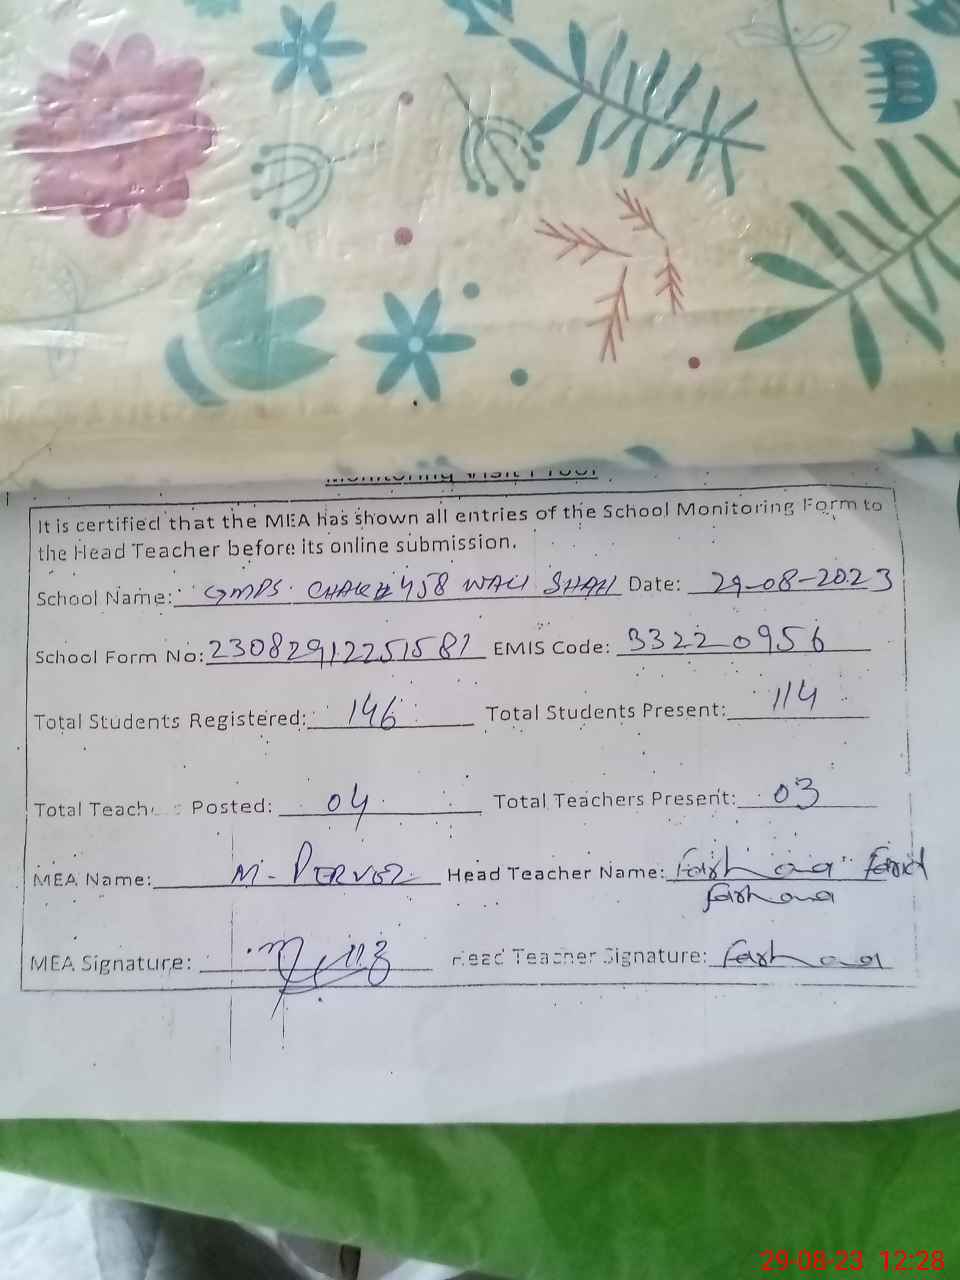 Monitoring Visit Proof
It is certified that the MEA has shown all entries of the School Monitoring Form to
the Head Teacher before its online submission.
School Name: GMPS. CHAK # 458 WALI SHAH Date: 29-08-2023
School Form No: 23082912251581 EMIS Code: 33220956
Total Students Registered: 146 Total Students Present: 114
Total Teach s Posted: 04 Total Teachers Present: 03
MEA Name: M- PERVEZ Head Teacher Name: Farhana Farid
Farhana
MEA Signature: Head Teacher Signature: Farhana
29-08-23 12:28